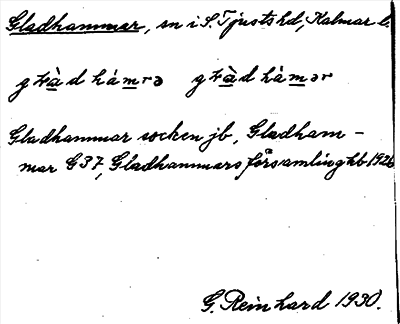 Gladhammar, sn i S. Tjusts hd, Kalmar l.
Gladhammar socken jb, Gladham-
mar G37, Gladhammars församling kb 1926
G. Reinhard 1930.